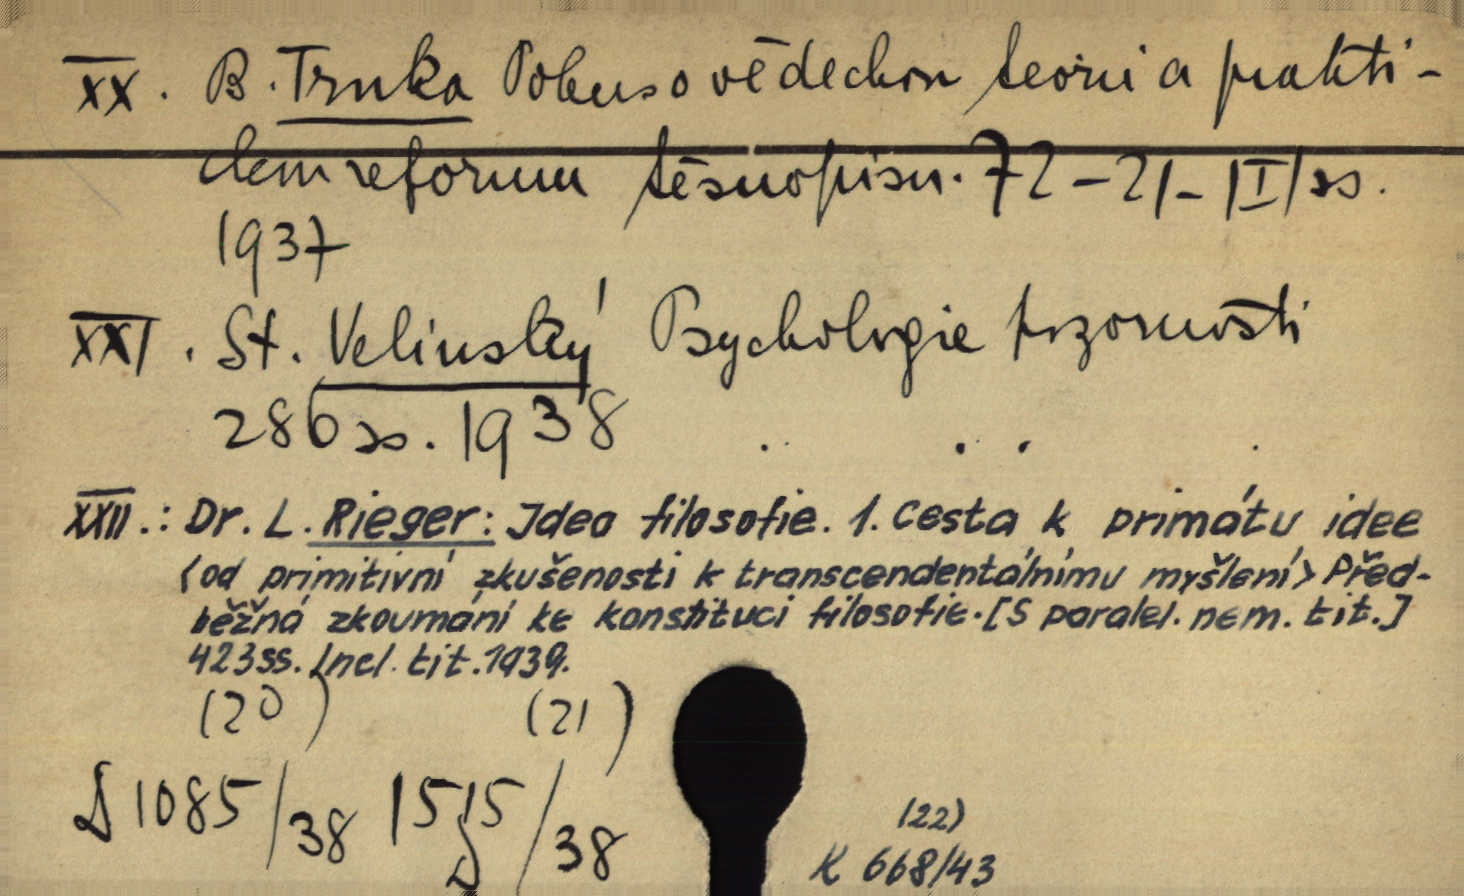 XX. B. Trnka Pokus o vědeckou teorii a prakti-
ckou reformu těsnopisu. 72-21-|I|ss.
1937
XXI. St. Velinský Psychologie pozornosti
286 ss. 1938
XXII.: Dr. L. Rieger: Idea filosofie. 1. Cesta k primátu idee
(od primitivní zkušenosti k transcendentálnímu myšlení) Před-
běžná zkoumání ke konstituci filosofie. [S paralel. nem. tit.]
423 ss. Incl. tit. 1939.
(20) (21)
D 1085/38 1515/38
D
(22)
K 668/43